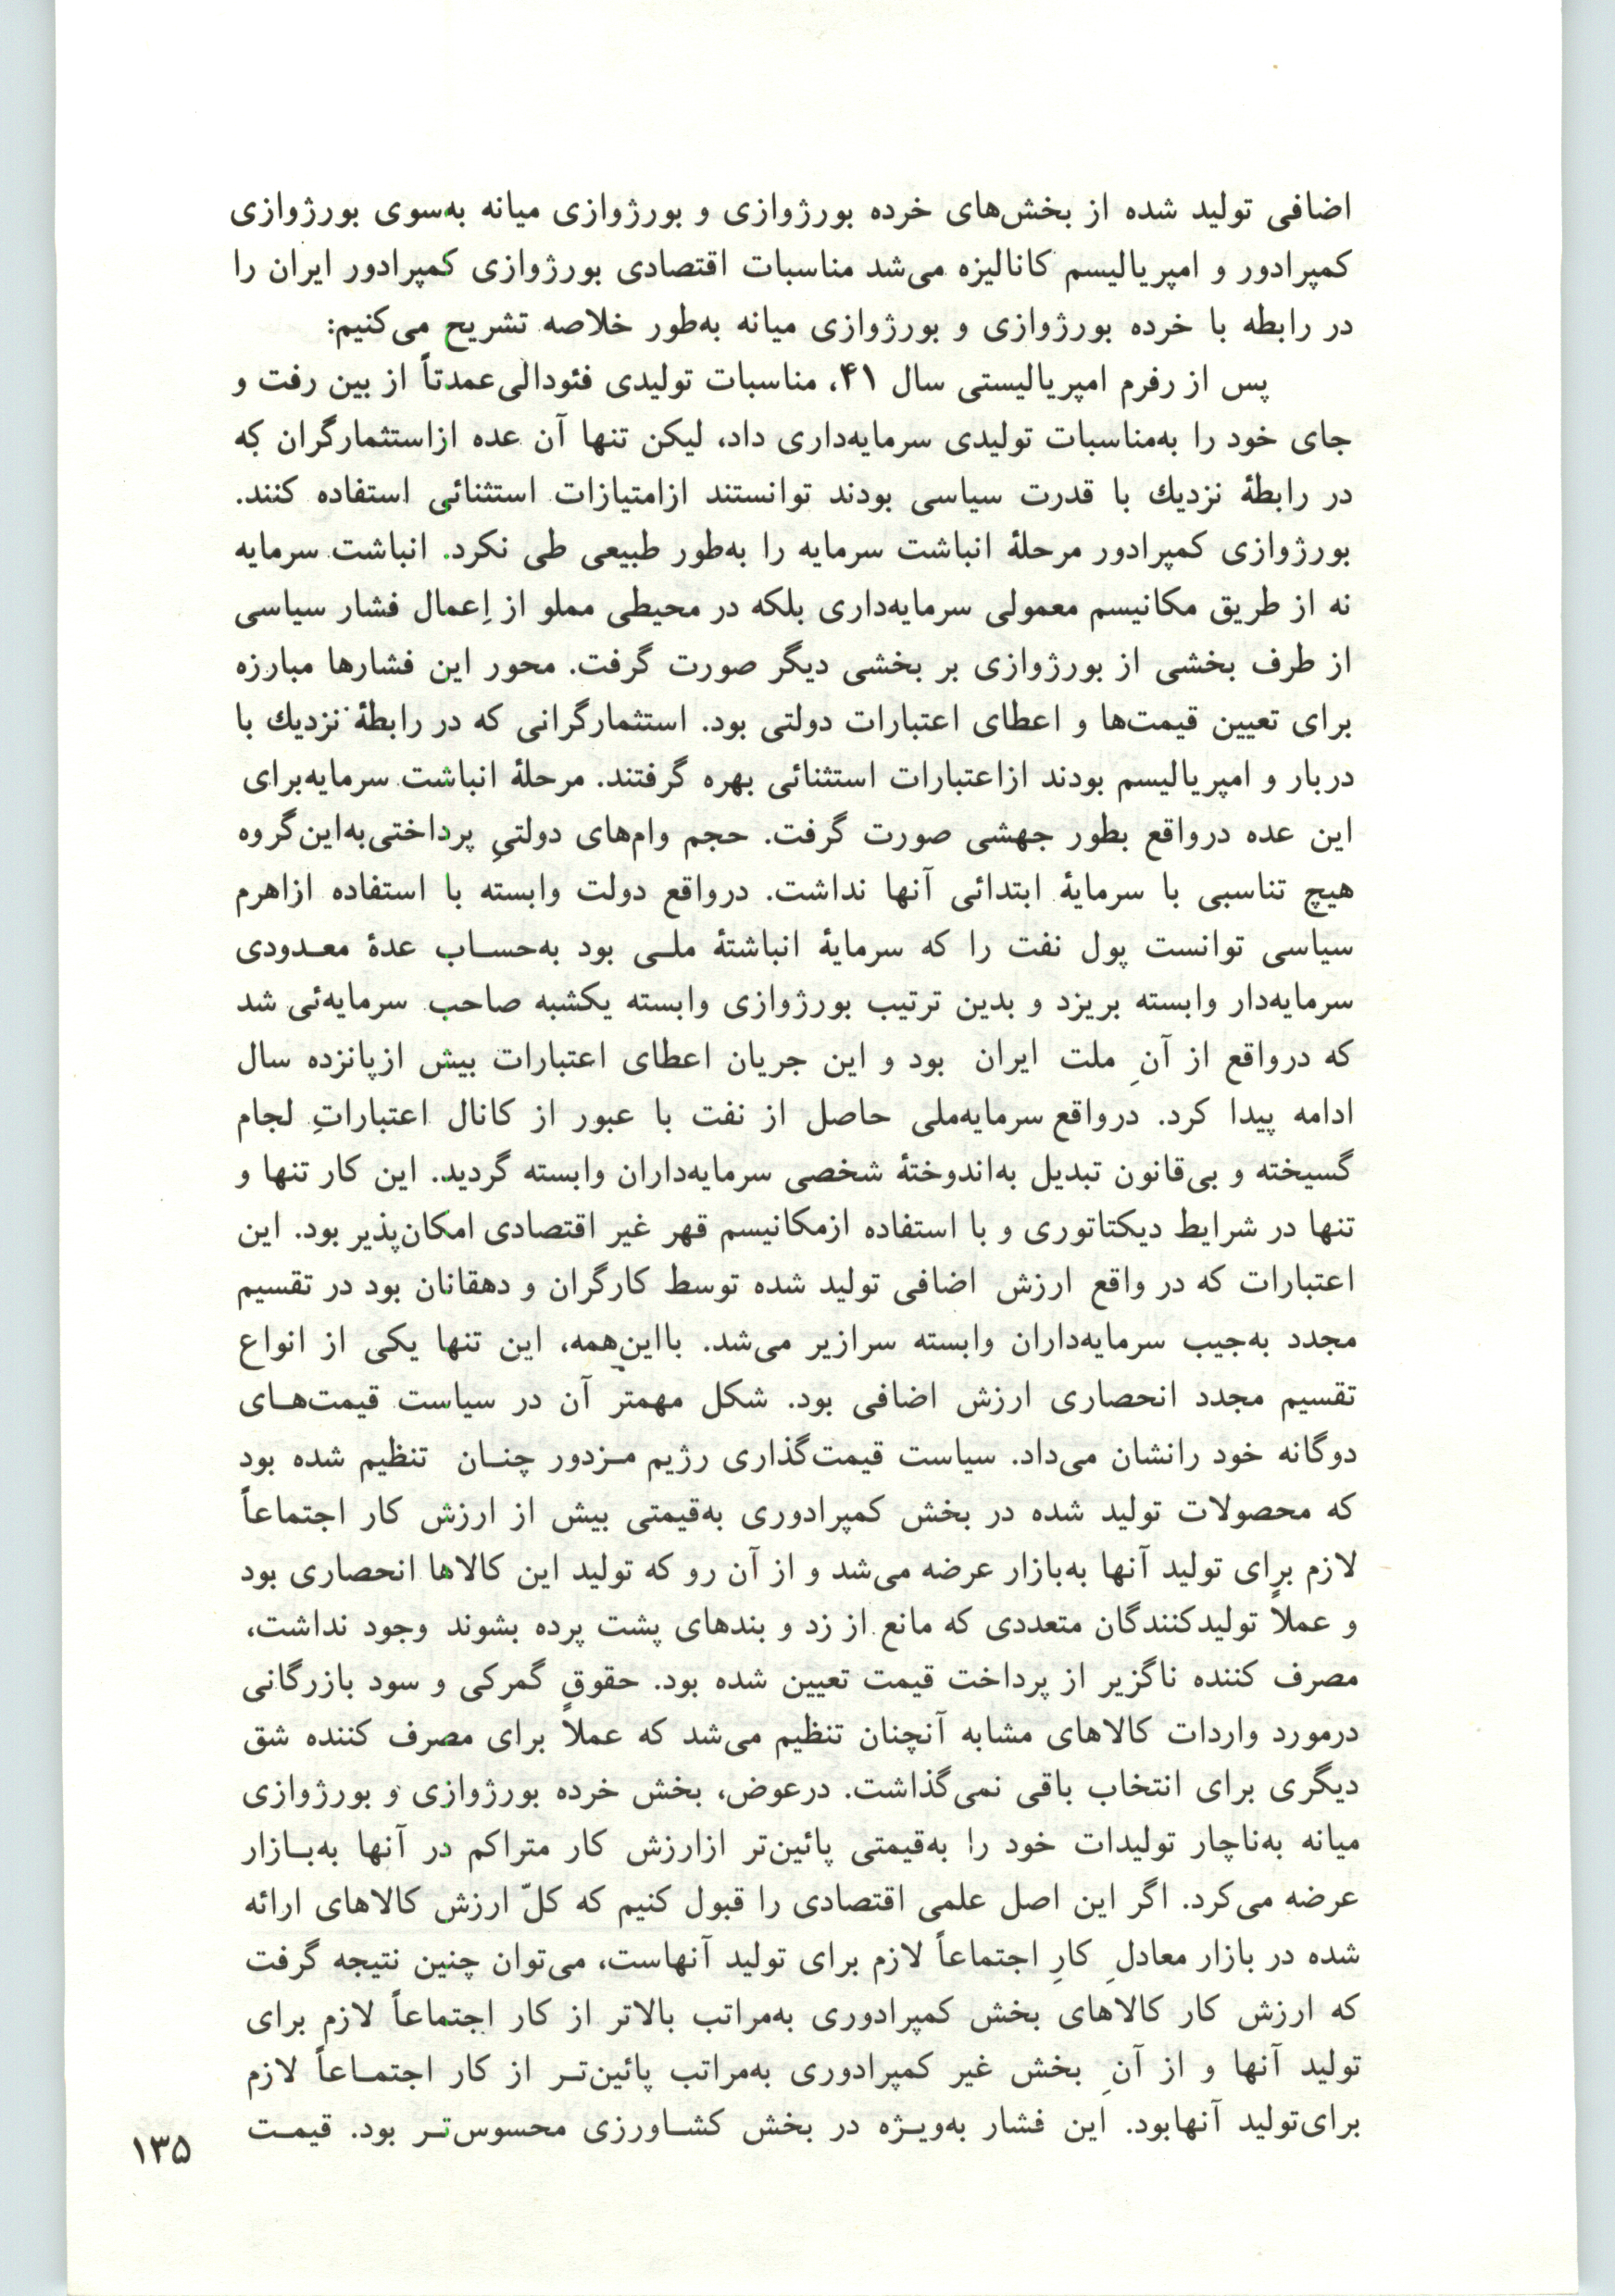 اضافی تولید شده از بخش‌های خرده بورژوازی و بورژوازی میانه به‌سوی بورژوازی
کمپرادور و امپریالیسم کانالیزه می‌شد مناسبات اقتصادی بورژوازی کمپرادور ایران را
در رابطه با خرده بورژوازی و بورژوازی میانه به‌طور خلاصه تشریح می‌کنیم:
پس از رفرم امپریالیستی سال ۴۱، مناسبات تولیدی فئودالی‌عمدتاً از بین رفت و
جای خود را به‌مناسبات تولیدی سرمایه‌داری داد، لیکن تنها آن عده ازاستثمارگران که
در رابطهٔ نزدیك با قدرت سیاسی بودند توانستند ازامتیازات استثنائی استفاده کنند.
بورژوازی کمپرادور مرحلهٔ انباشت سرمایه را به‌طور طبیعی طی نکرد. انباشت سرمایه
نه از طریق مکانیسم معمولی سرمایه‌داری بلکه در محیطی مملو از اِعمال فشار سیاسی
از طرف بخشی از بورژوازی بر بخشی دیگر صورت گرفت. محور این فشارها مبارزه
برای تعیین قیمت‌ها و اعطای اعتبارات دولتی بود. استثمارگرانی که در رابطهٔ نزدیك با
دربار و امپریالیسم بودند ازاعتبارات استثنائی بهره گرفتند. مرحلهٔ انباشت سرمایه‌برای
این عده درواقع بطور جهشی صورت گرفت. حجم وام‌های دولتیِ پرداختی‌به‌این‌گروه
هیچ تناسبی با سرمایهٔ ابتدائی آنها نداشت. درواقع دولت وابسته با استفاده ازاهرم
سیاسی توانست پول نفت را که سرمایهٔ انباشتهٔ ملـی بود به‌حسـاب عدهٔ معـدودی
سرمایه‌دار وابسته بریزد و بدین ترتیب بورژوازی وابسته یکشبه صاحب سرمایه‌ئی شد
که درواقع از آنِ ملت ایران بود و این جریان اعطای اعتبارات بیش ازپانزده سال
ادامه پیدا کرد. درواقع سرمایه‌ملی حاصل از نفت با عبور از کانال اعتباراتِ لجام
گسیخته و بی‌قانون تبدیل به‌اندوختهٔ شخصی سرمایه‌داران وابسته گردید. این کار تنها و
تنها در شرایط دیکتاتوری و با استفاده ازمکانیسم قهر غیر اقتصادی امکان‌پذیر بود. این
اعتبارات که در واقع ارزش اضافی تولید شده توسط کارگران و دهقانان بود در تقسیم
مجدد به‌جیب سرمایه‌داران وابسته سرازیر می‌شد. بااین‌همه، این تنها یکی از انواع
تقسیم مجدد انحصاری ارزش اضافی بود. شکل مهمتر آن در سیاست قیمت‌هـای
دوگانه خود رانشان می‌داد. سیاست قیمت‌گذاری رژیم مـزدور چنـان تنظیم شده بود
که محصولات تولید شده در بخش کمپرادوری به‌قیمتی بیش از ارزش کار اجتماعاً
لازم برای تولید آنها به‌بازار عرضه می‌شد و از آن رو که تولید این کالاها انحصاری بود
و عملاً تولیدکنندگان متعددی که مانع از زد و بندهای پشت پرده بشوند وجود نداشت،
مصرف کننده ناگزیر از پرداخت قیمت تعیین شده بود. حقوق گمرکی و سود بازرگانی
درمورد واردات کالاهای مشابه آنچنان تنظیم می‌شد که عملاً برای مصرف کننده شق
دیگری برای انتخاب باقی نمی‌گذاشت. درعوض، بخش خرده بورژوازی و بورژوازی
میانه به‌ناچار تولیدات خود را به‌قیمتی پائین‌تر ازارزش کار متراکم در آنها به‌بـازار
عرضه می‌کرد. اگر این اصل علمی اقتصادی را قبول کنیم که کلّ ارزش کالاهای ارائه
شده در بازار معادلِ کارِ اجتماعاً لازم برای تولید آنهاست، می‌توان چنین نتیجه گرفت
که ارزش کار کالاهای بخش کمپرادوری به‌مراتب بالاتر از کار اجتماعاً لازم برای
تولید آنها و از آنِ بخش غیر کمپرادوری به‌مراتب پائین‌تـر از کار اجتمـاعاً لازم
برای‌تولید آنهابود. این فشار به‌ویـژه در بخش کشـاورزی محسوس‌تـر بود. قیمـت
۱۳۵